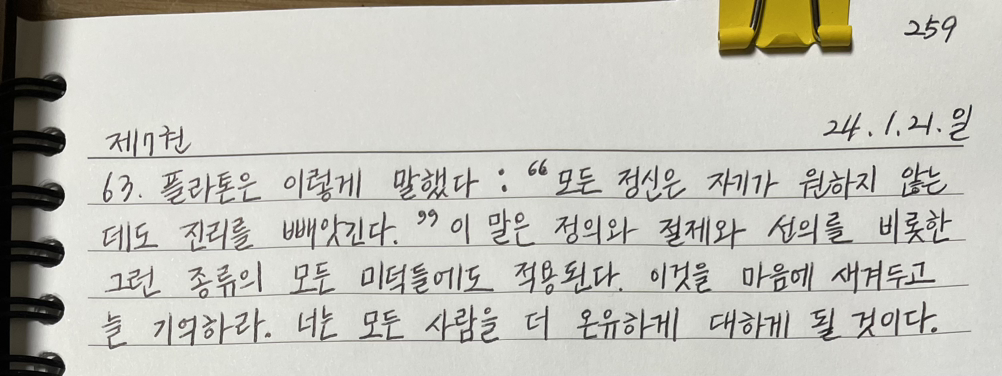 259
제7권 24.1.21.일
63. 플라톤은 이렇게 말했다 : “모든 정신은 자기가 원하지 않는
데도 진리를 빼앗긴다.” 이 말은 정의와 절제와 선의를 비롯한
그런 종류의 모든 미덕들에도 적용된다. 이것을 마음에 새겨두고
늘 기억하라. 너는 모든 사람을 더 온유하게 대하게 될 것이다.